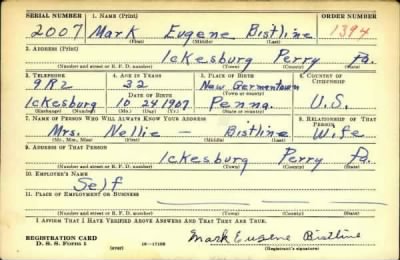 SERIAL NUMBER 1. NAME (Print) ORDER NUMBER
2007 Mark Eugene Bistline 1394
(First) (Middle) (Last)
2. ADDRESS (Print)
Ickesburg Perry Pa.
(Number and street or R. F. D. number) (Town) (County) (State)
3. TELEPHONE 4. AGE IN YEARS 5. PLACE OF BIRTH 6. COUNTRY OF CITIZENSHIP
9R2 32 New Germantown
DATE OF BIRTH (Town or county)
Ickesburg 10 24 1907 Penna. U.S.
(Exchange) (Number) (Mo.) (Day) (Yr.) (State or country)
7. NAME OF PERSON WHO WILL ALWAYS KNOW YOUR ADDRESS 8. RELATIONSHIP OF THAT PERSON
Mrs. Nellie — Bistline Wife
(Mr., Mrs., Miss) (First) (Middle) (Last)
9. ADDRESS OF THAT PERSON
Ickesburg Perry Pa.
(Number and street or R. F. D. number) (Town) (County) (State)
10. EMPLOYER'S NAME
Self
11. PLACE OF EMPLOYMENT OR BUSINESS
(Number and street or R. F. D. number) (Town) (County) (State)
I AFFIRM THAT I HAVE VERIFIED ABOVE ANSWERS AND THAT THEY ARE TRUE.
REGISTRATION CARD Mark Eugene Bistline
D. S. S. Form 1 (over) 16—17105 (Registrant's signature)